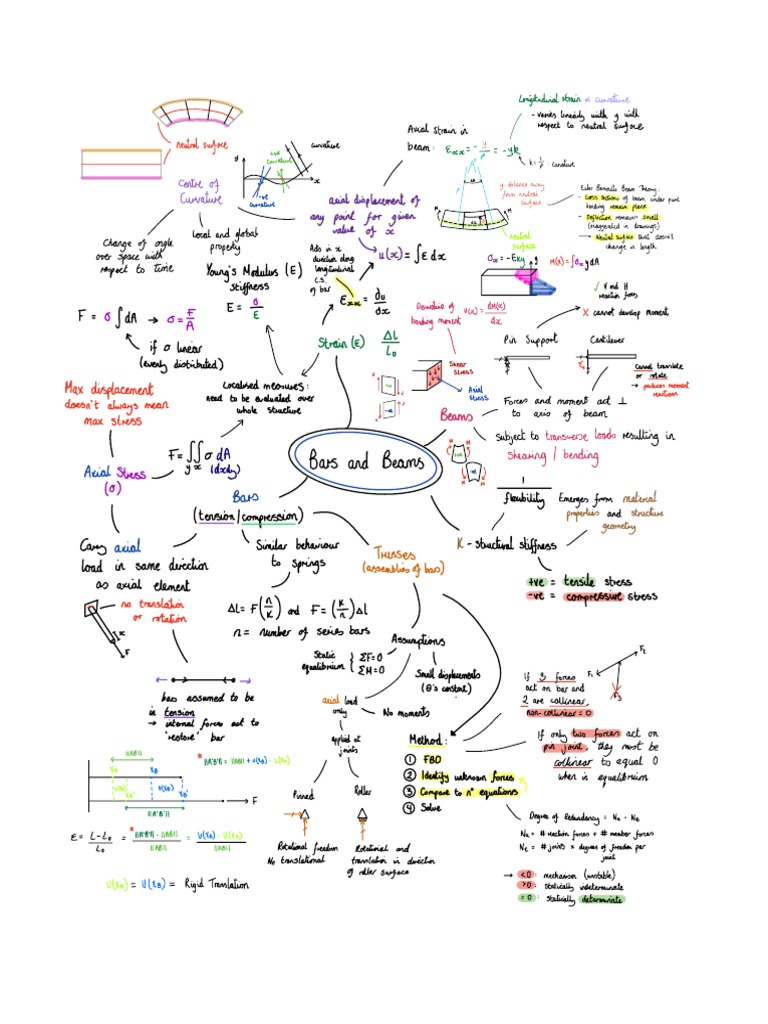 Bars and Beams
neutral surface
Centre of
Curvature
y
x
+ve
curvature
-ve
curvature
curvature
Change of angle
over space with
respect to time
Local and global
property
Young's Modulus (E)
stiffness
E = σ/ε
F = σ∫dA → σ = F/A
if σ linear
(evenly distributed)
Max displacement
doesn't always mean
max stress
Localised measures:
need to be evaluated over
whole structure
F = ∫∫ σ dA
y x (dxdy)
Axial Stress
(σ)
Carry axial
load in same direction
as axial element
no translation
or rotation
x
F
Bars
(tension/compression)
Similar behaviour
to springs
Δl = F(n/K) and F = (K/n)Δl
n = number of series bars
bar assumed to be
in tension
→ internal forces act to
'restore' bar
||AB||
* ||A'B'|| = ||AB|| + U(XB) - U(XA)
XA
XB
U(XA)
U(XB)
XA'
XB'
F
||A'B'||
ε = L-L₀/L₀ = * ||A'B'|| - ||AB||/||AB|| = U(XB) - U(XA)/||AB||
U(XA) = U(XB) = Rigid Translation
axial displacement of
any point for given
value of x
u(x) = ∫ε dx
Acts in x
direction along
longitudinal
c.s.
of bar
εxx = ∂u/∂x
Strain (ε) Δl/L₀
Axial strain in
beam: εxx = -y/R = -yk
k = 1/R curvature
Longitudinal strain ∝ curvature
- varies linearly with y with
respect to neutral surface
y: distance away
from neutral
surface
M
M
neutral
surface
Euler Bernoulli Beam Theory:
- Cross sections of beam under pure
bending remain plane
- Deflection remains small
(exaggerated in drawings)
→ Neutral surface that doesn't
change in length
σx = -Eky
y
M(x) = ∫σx y dA
✓ V and H
reaction forces
X cannot develop moment
Derivative of
bending moment
V(x) = dM(x)/dx
Pin Support
Cantilever
Cannot translate
or rotate
→ produces moment
reactions
Shear
stress
Axial
stress
Beams
Forces and moment act ⊥
to axis of beam
subject to transverse loads resulting in
shearing / bending
+ve
-ve
M
M
M
M
1/flexibility
Emerges from material
properties and structure
geometry
K - structural stiffness
+ve = tensile stress
-ve = compressive stress
Trusses
(assemblies of bars)
Assumptions
Static
equilibrium { ΣF=0
ΣM=0
Small displacements
(θ's constant)
axial load
only
No moments
applied at
joints
Pinned
Roller
Rotational freedom
No translational
Rotational and
translation in direction
of roller surface
Method:
① FBD
② Identify unknown forces
③ Compare to n° equations
④ Solve
If 3 forces
act on bar and
2 are collinear,
non-collinear = 0
F₁
F₂
F₃
If only two forces act on
pin joint, they must be
collinear to equal 0
when in equilibrium
Degree of Redundancy = Nu - Ne
Nu = # reaction forces + # member forces
Ne = # joints × degree of freedom per
joint
→ <0: mechanism (unstable)
>0: statically indeterminate
=0: statically determinate